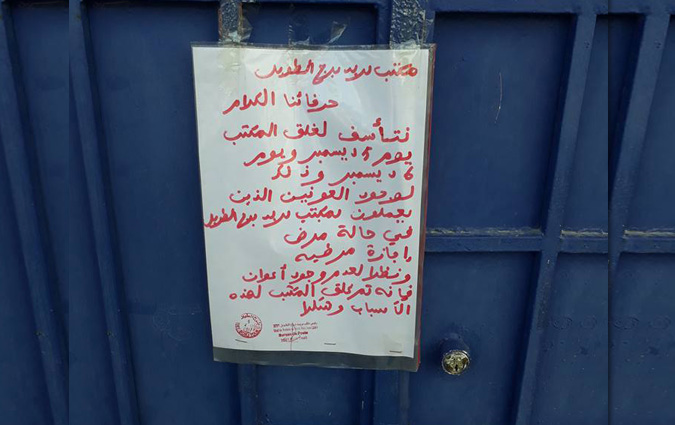 مكتب بريد برج الطويل
حرفائنا الكرام
نتأسف لغلق المكتب
يوم 5 ديسمبر ويوم
6 ديسمبر وذلك
لوجود العونين الذين
يعملون بمكتب بريد برج الطويل
في حالة مرض
(اجازة مرضية
ونظرا لعدم وجود أعوان
فإنه تم غلق المكتب لهذه
الأسباب وشكرا